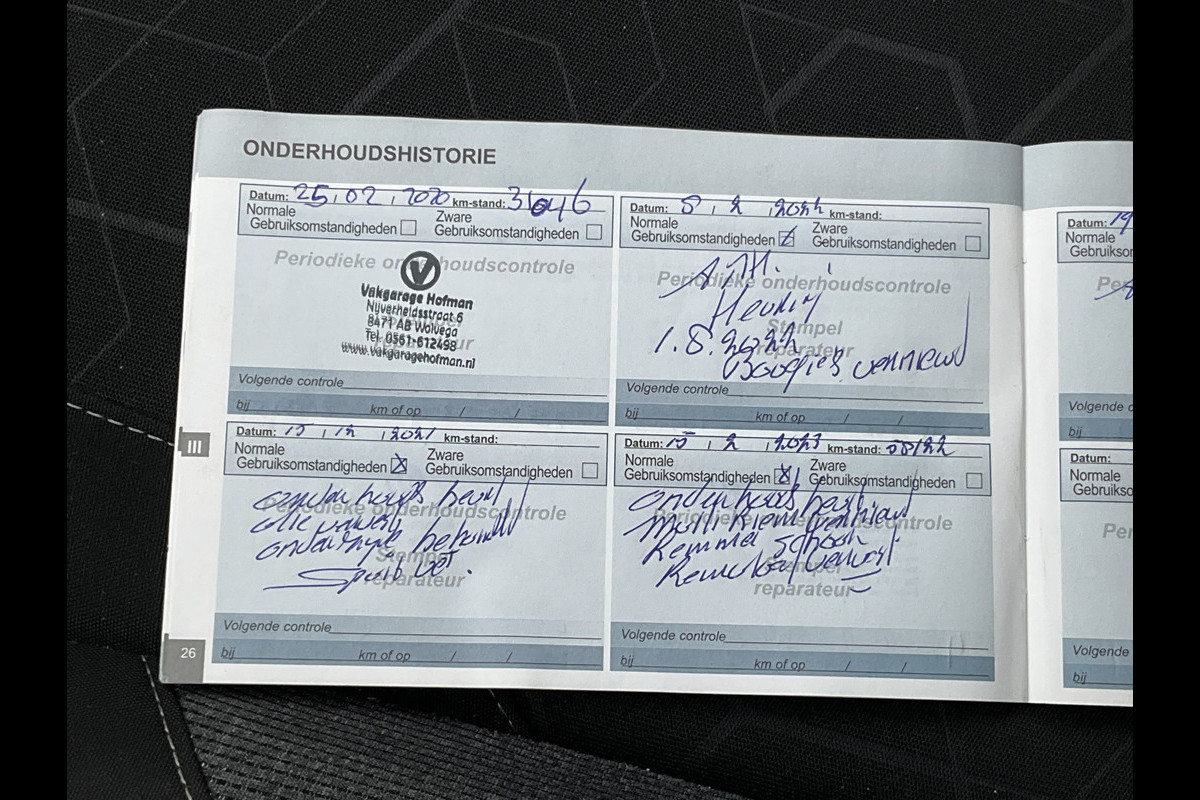 ONDERHOUDSHISTORIE
Datum: 25 / 02 / 2020 km-stand: 31046
Normale Gebruiksomstandigheden
Zware Gebruiksomstandigheden
Periodieke onderhoudscontrole
Vakgarage Hofman
Nijverheidsstraat 6
8471 AB Wolvega
Tel. 0561-612498
www.vakgaragehofman.nl
Volgende controle
bij km of op / /
Datum: 8 / 2 / 2022 km-stand:
Normale Gebruiksomstandigheden
Zware Gebruiksomstandigheden
Periodieke onderhoudscontrole
Stempel
reparateur
1.8.2022
Bougies vernieuwd
Volgende controle
bij km of op / /
III
Datum: 15 / 12 / 2021 km-stand:
Normale Gebruiksomstandigheden
Zware Gebruiksomstandigheden
Periodieke onderhoudscontrole
Stempel
reparateur
onderhouds beurt
behandeld
Volgende controle
bij km of op / /
Datum: 15 / 2 / 2023 km-stand: 58122
Normale Gebruiksomstandigheden
Zware Gebruiksomstandigheden
Periodieke onderhoudscontrole
Stempel
reparateur
onderhouds beurt
Remmen schoon
Volgende controle
bij km of op / /
26
Datum: 19
Normale
Gebruiksor
Pe
Volgende c
bij
Datum:
Normale
Gebruikso
Per
Volgende
bij